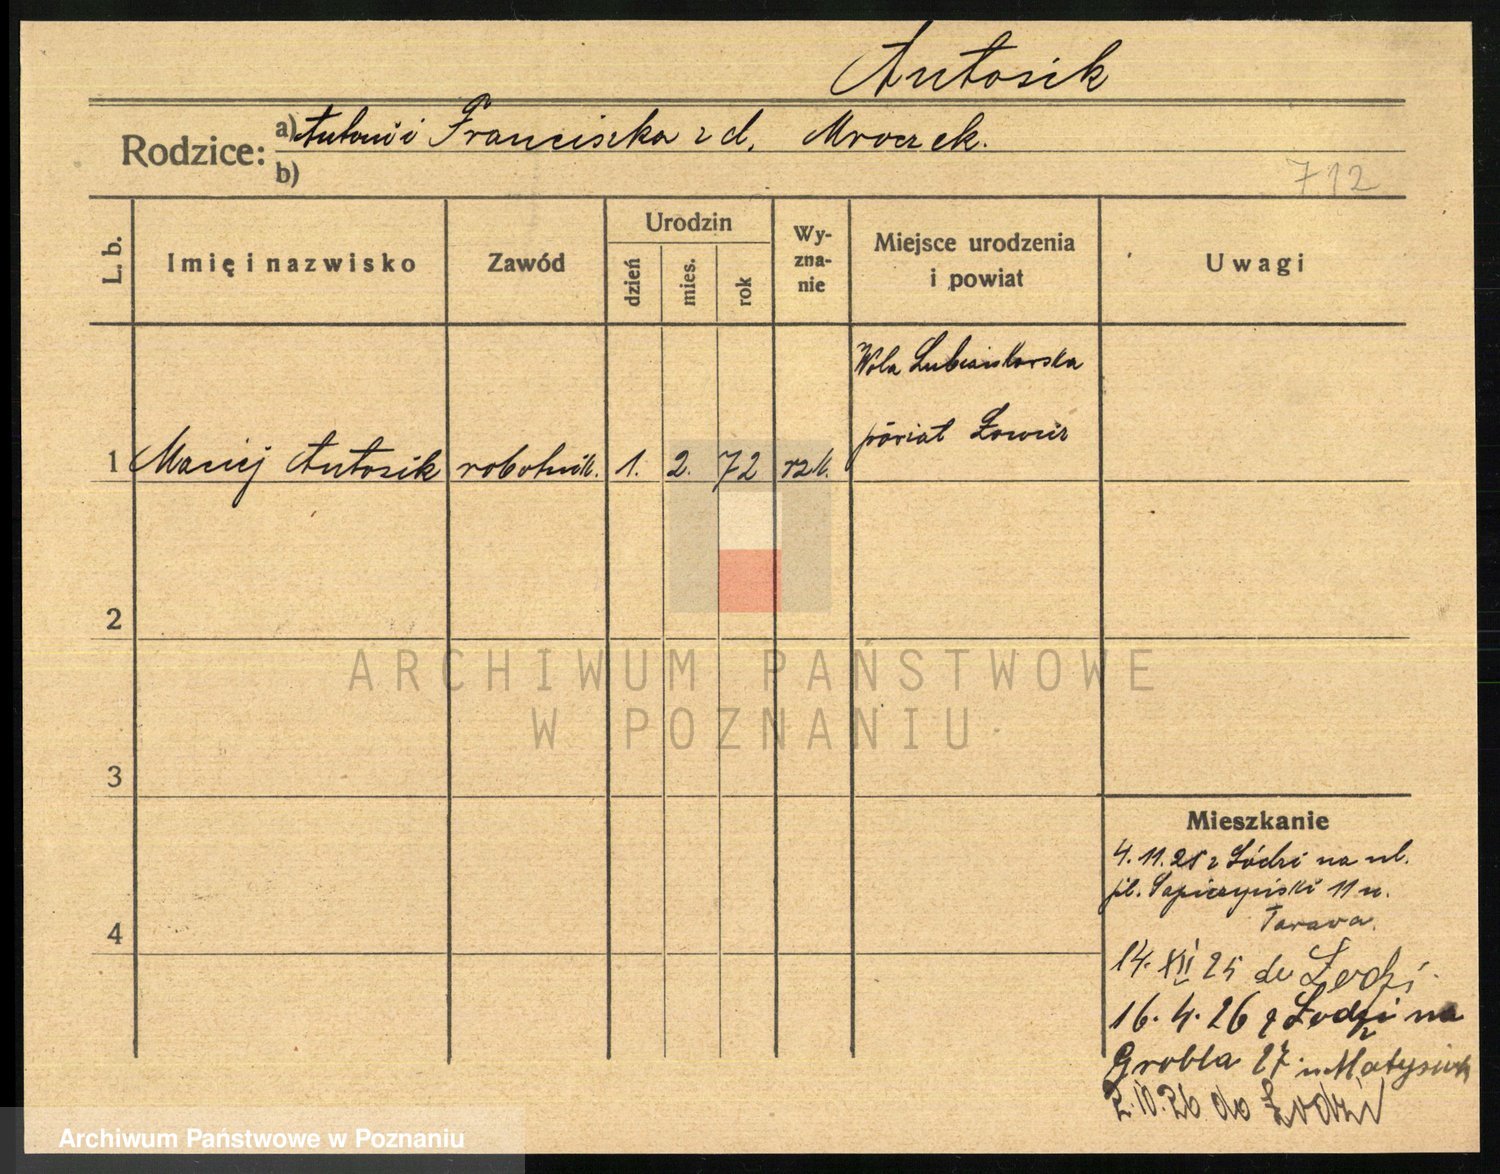 Antosik
Rodzice: a) Antoni i Franciszka z d. Mroczek.
b)
712
L. b.
Imię i nazwisko
Zawód
Urodzin
dzień
mies.
rok
Wy-
zna-
nie
Miejsce urodzenia
i powiat
Uwagi
Wola Lubiankowska
powiat Łowicz
1 Maciej Antosik robotnik. 1. 2. 72 rzk.
2
3
4
ARCHIWUM PAŃSTWOWE
W POZNANIU
Mieszkanie
4.11.25 z Łódzi na ul.
pl. Sapieżyński 11 u.
14. XII 25 do Łodzi.
16. 4. 26 z Łodzi na
Grobla 27 u Matysiak
do Łodzi
Archiwum Państwowe w Poznaniu